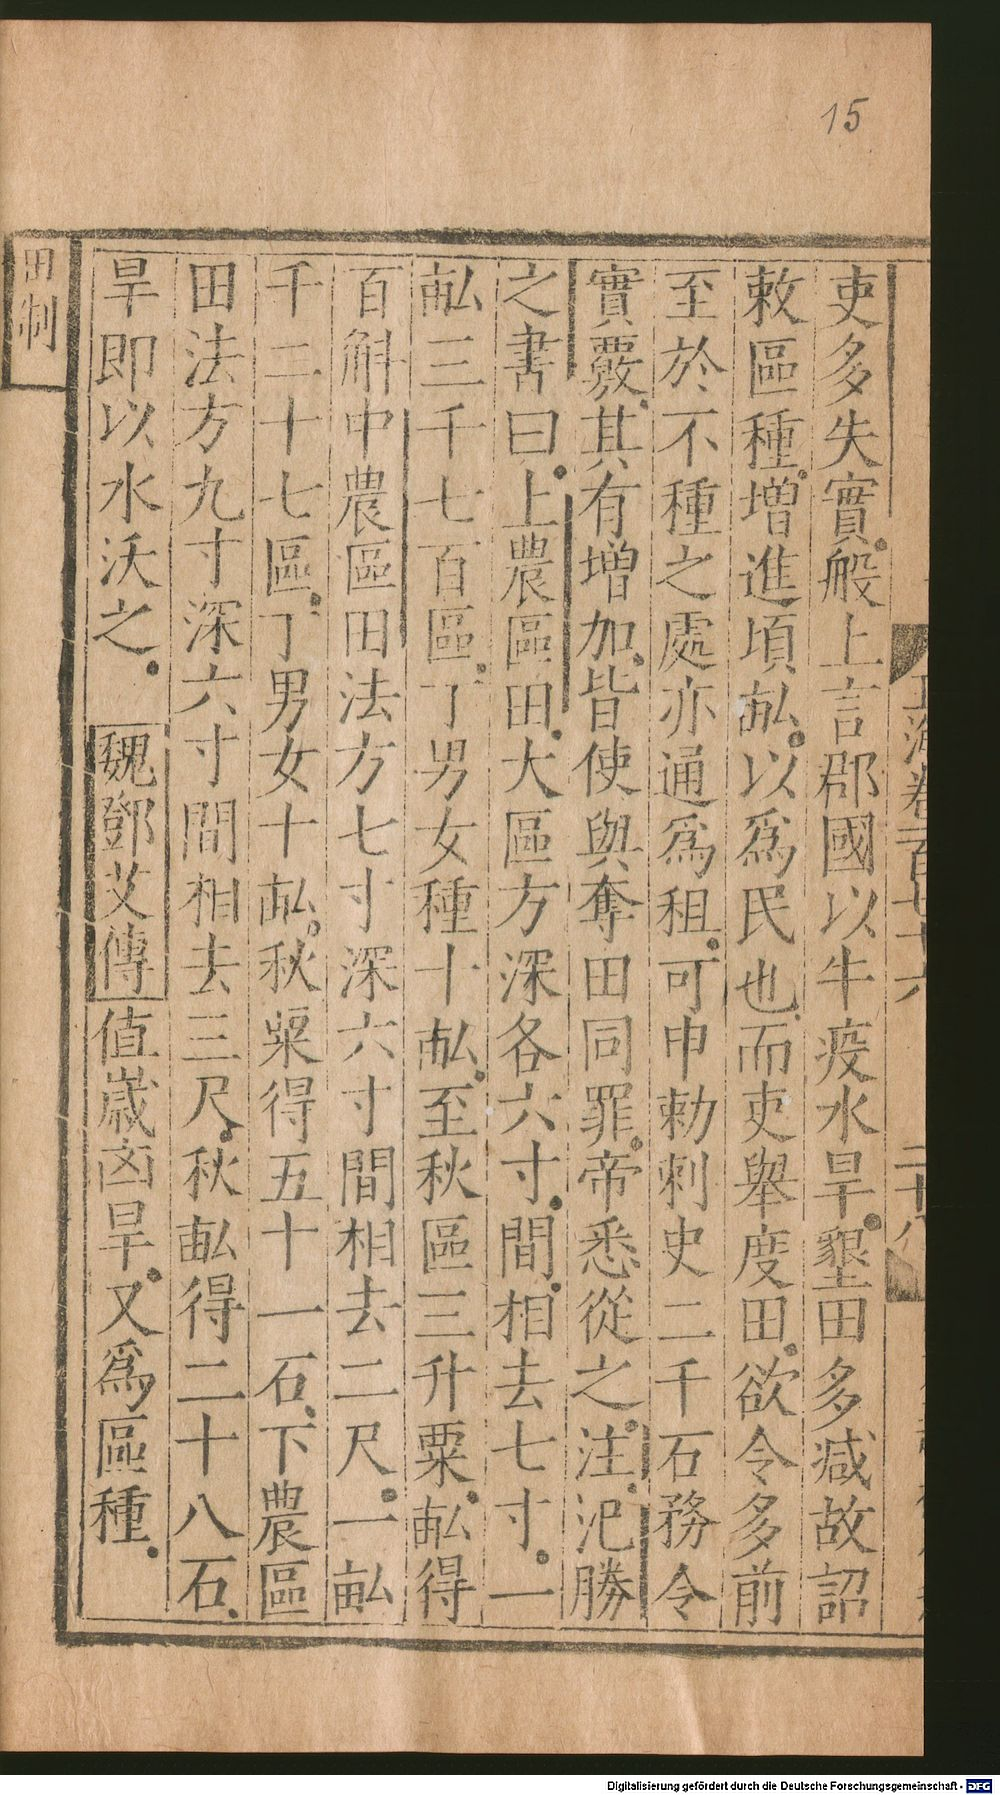 15
玉海卷百七十六
二十八
吏多失實般上言郡國以牛疫水旱墾田多減故詔
敕區種增進頃畆以爲民也而吏舉度田欲令多前
至於不種之處亦通爲租可申勅刺史二千石務令
實覈其有增加皆使與奪田同罪帝悉從之注氾勝
之書曰上農區田大區方深各六寸間相去七寸一
畆三千七百區丁男女種十畆至秋區三升粟畆得
百斛中農區田法方七寸深六寸間相去二尺一畆
千二十七區丁男女十畆秋粟得五十一石下農區
田法方九寸深六寸間相去三尺秋畆得二十八石
旱即以水沃之 魏鄧艾傳 值歲凶旱又爲區種
田制
Digitalisierung gefördert durch die Deutsche Forschungsgemeinschaft - DFG